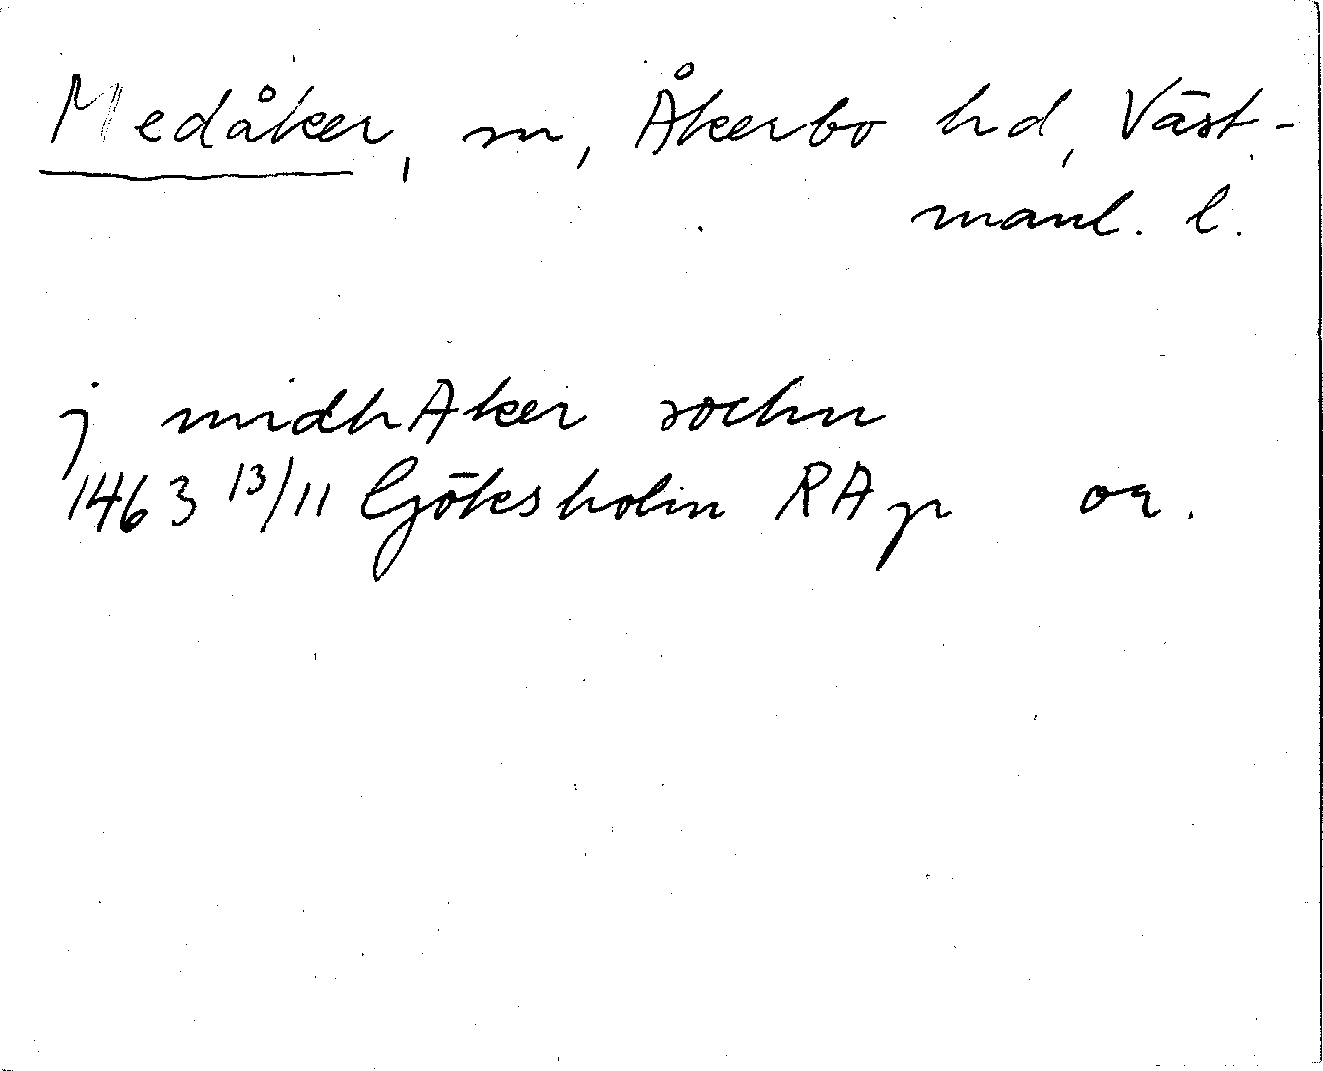 Medåker, sn, Åkerbo hd, Väst-
manl. l.
j midhAker sochn
1463 13/11 Göksholm RAp or.